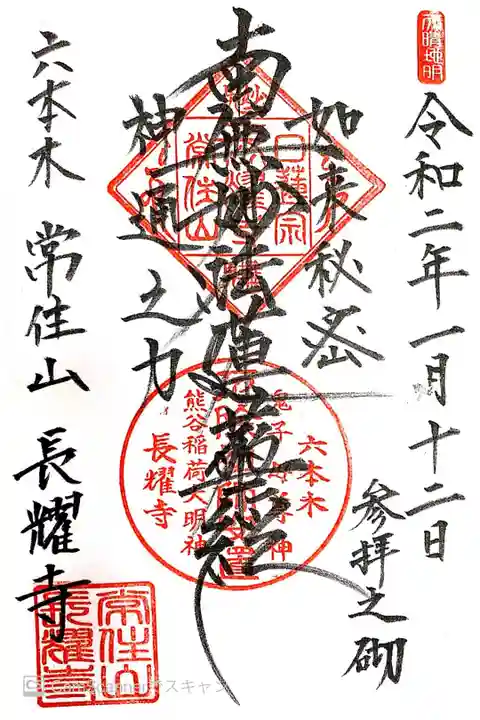 令和二年一月十二日
参拝之砌
如来秘密
南無妙法蓮華経
神通之力
六本木 常住山 長耀寺
日蓮宗
常住山
六本木
熊谷稲荷大明神
長耀寺
常住山
長耀寺